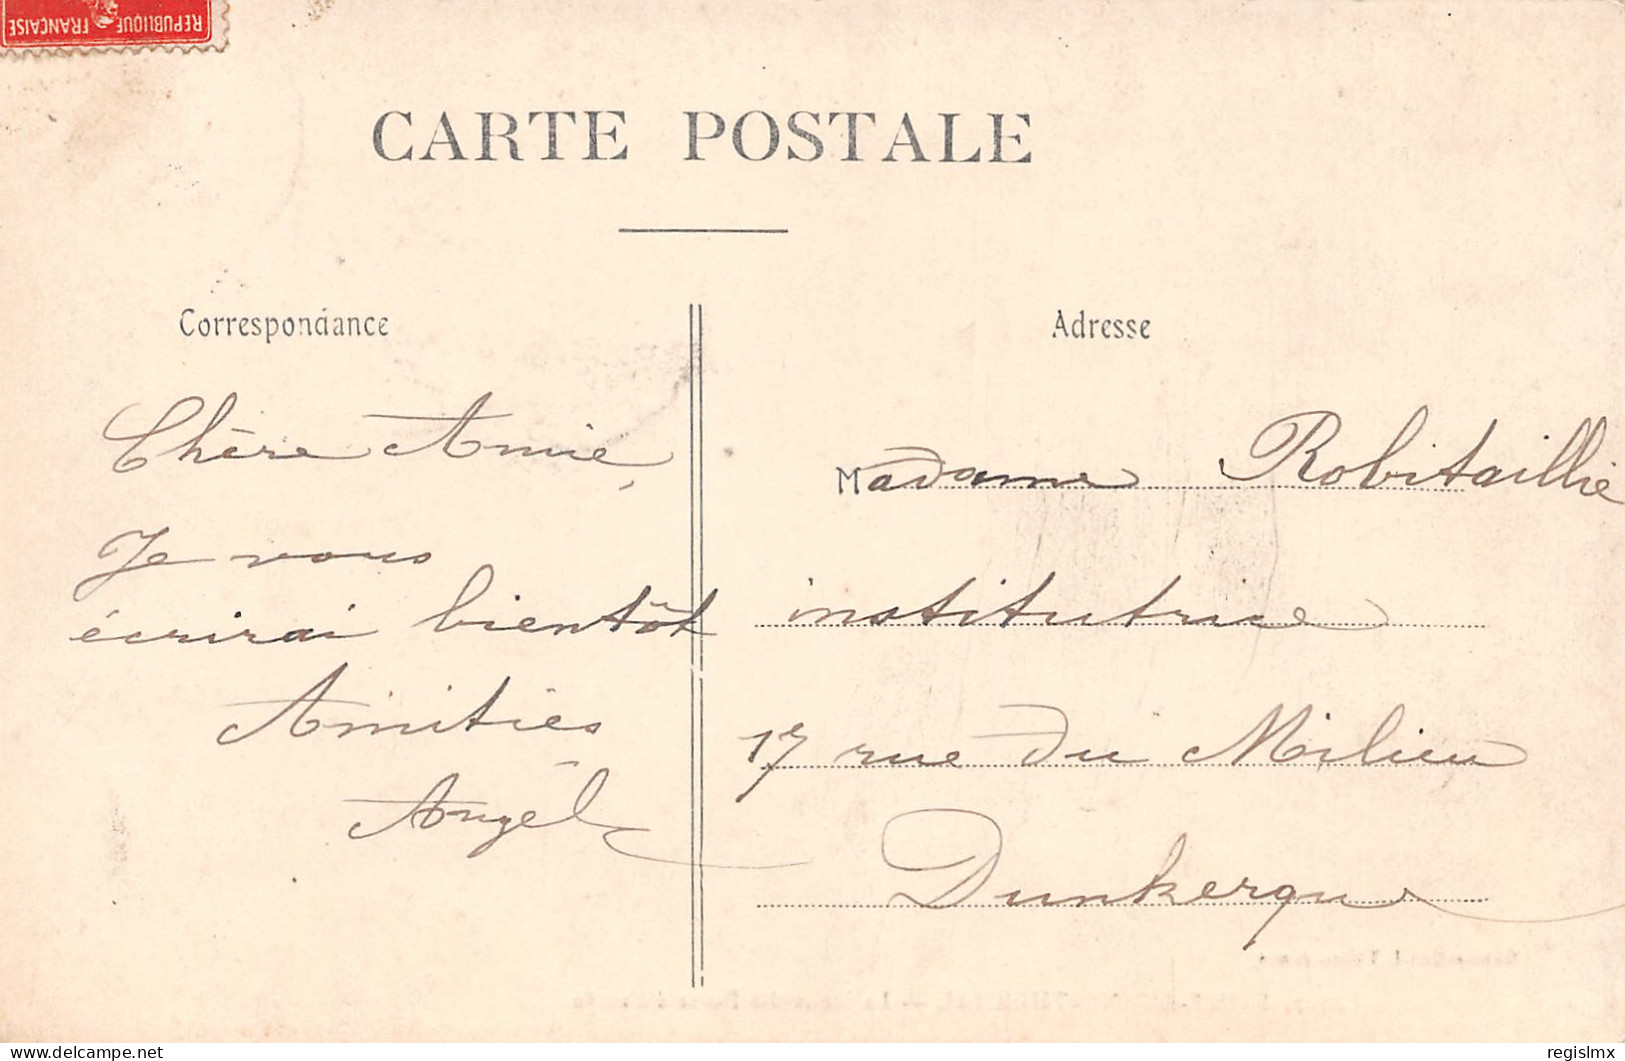 REPUBLIQUE FRANÇAISE
CARTE POSTALE
Correspondance
Adresse
Chère Amie,
Je vous
écrirai bientôt
Amitiés
Angèle
Madame Robitaillie
institutrice
17 rue du Milieu
Dunkerque
delcampe.net
regislmx